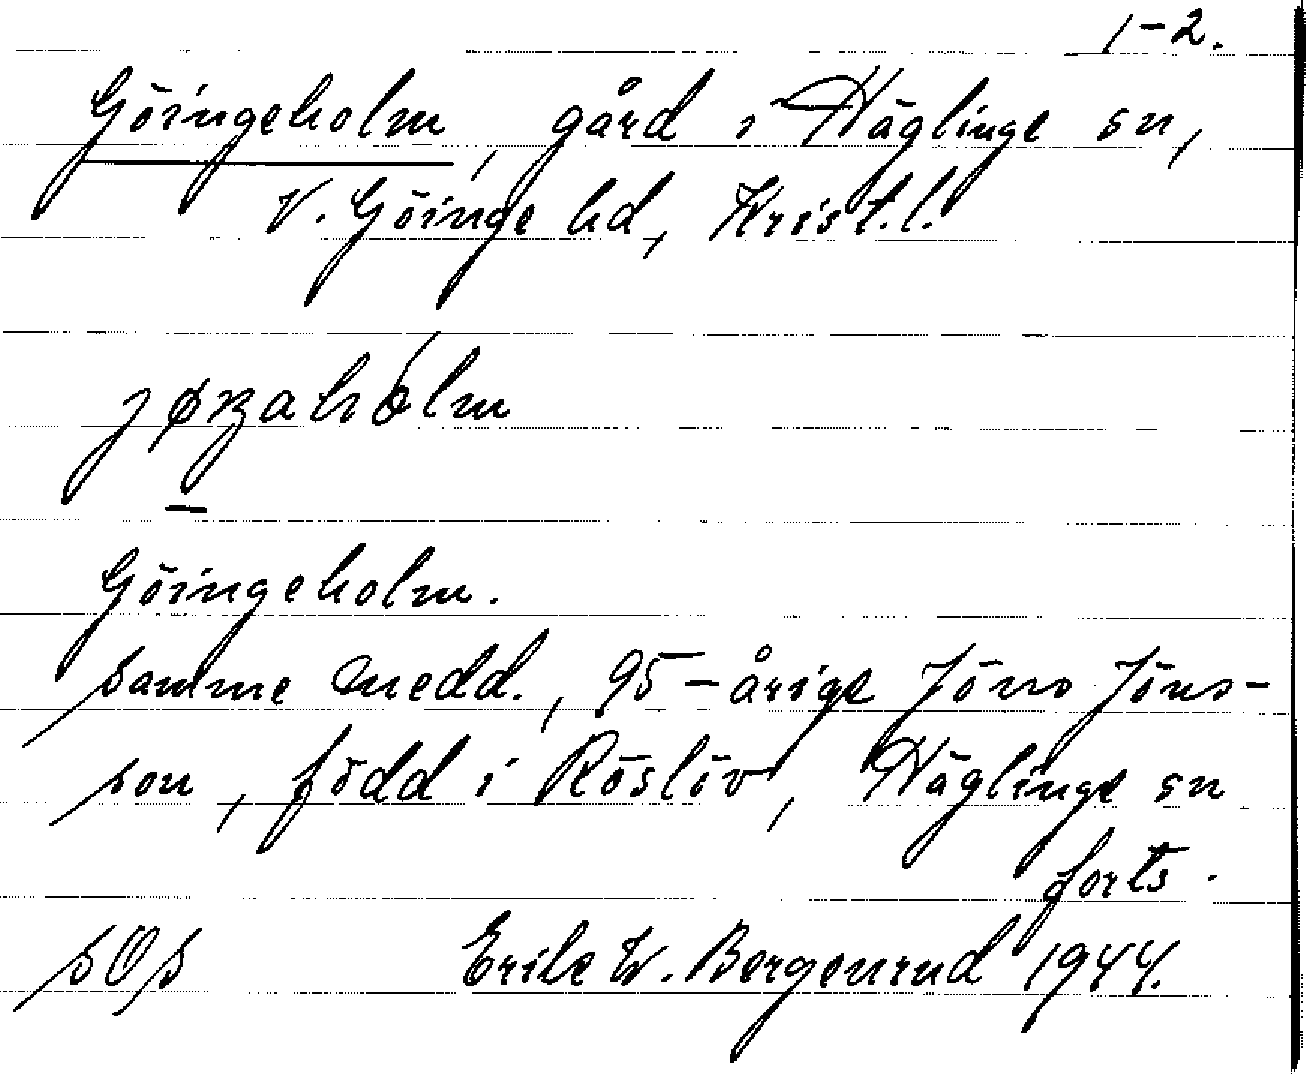 1-2.
Göingeholm, gård i Häglinge sn,
V. Göinge hd, Krist.l.
Göingeholm.
samme medd., 95-årige Jöns Jöns-
son, född i Röslöv, Häglinge sn
forts.
sOs Erik W. Bergenrud 1944.